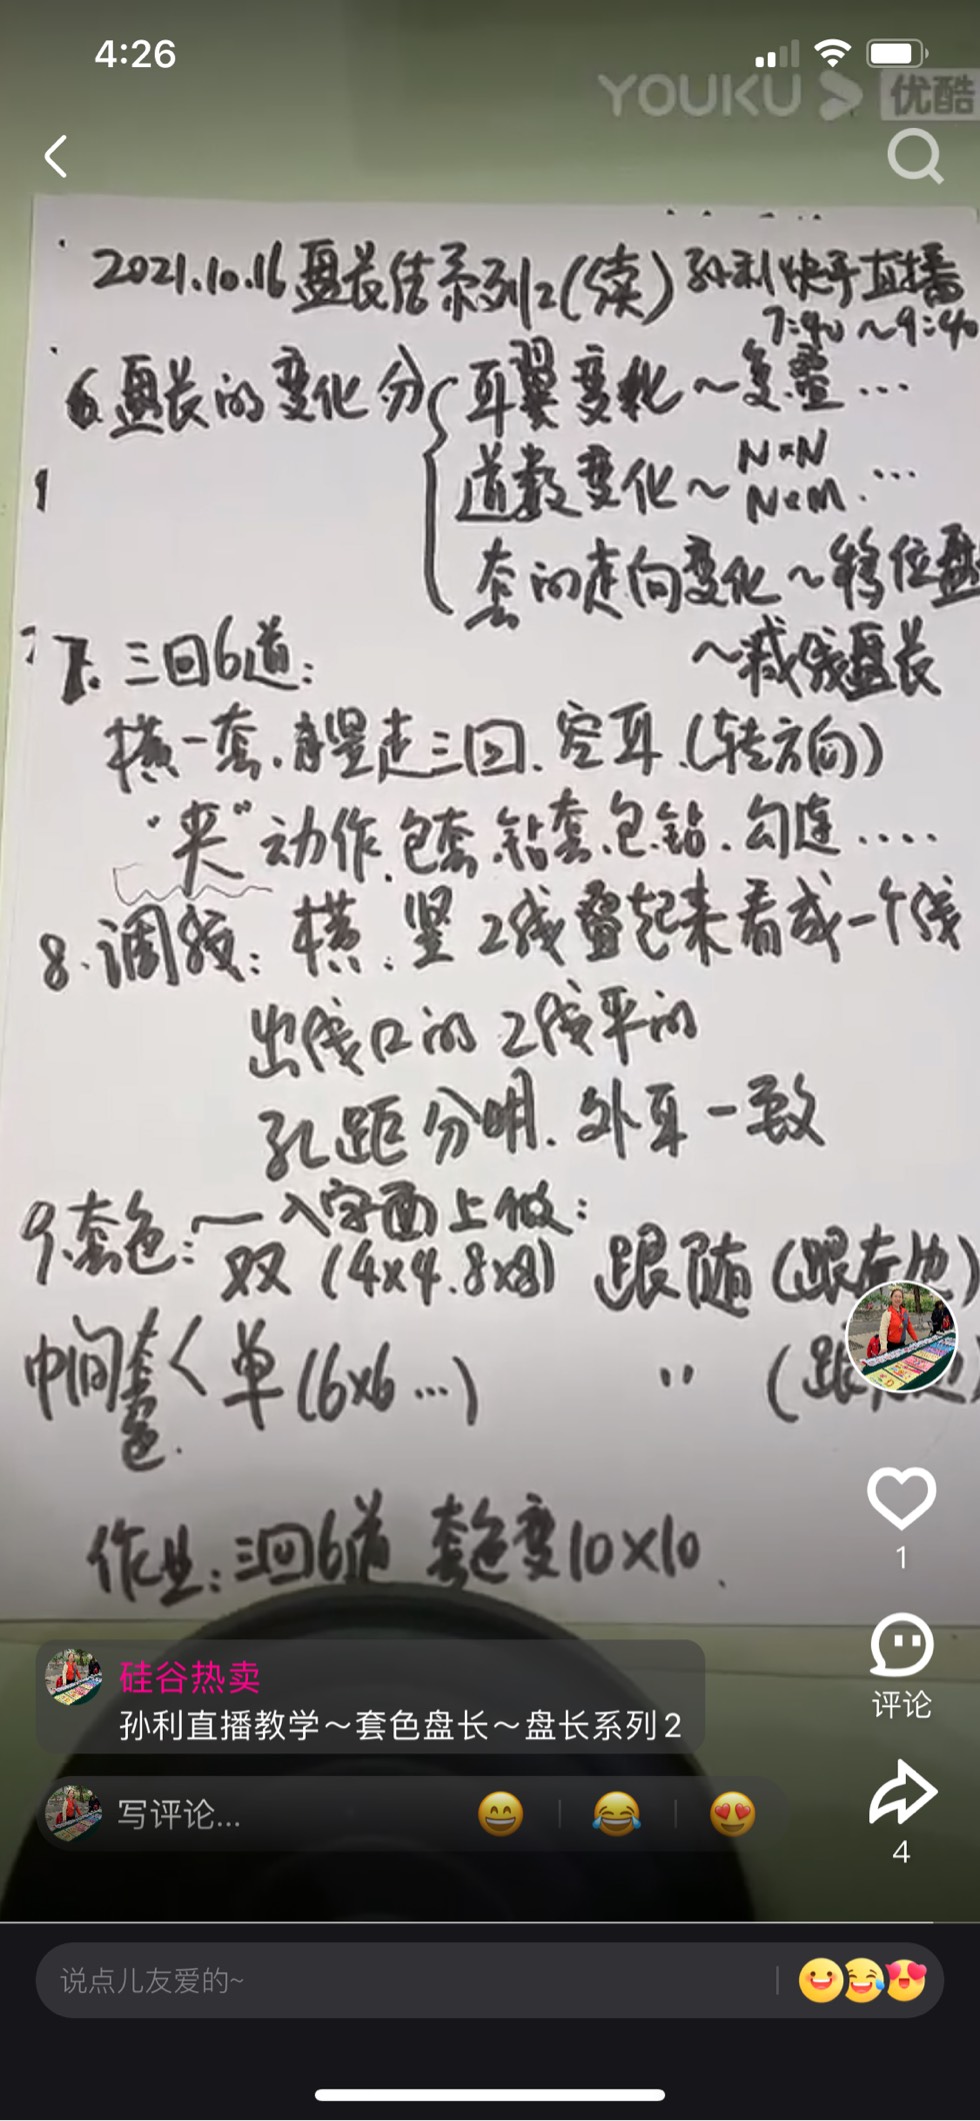 4:26
YOUKU 优酷
2021.10.16盘长结系列2(续)孙利快手直播
7:40～9:40
6.盘长的变化分 耳翼变化～复叠…
1
道数变化～N×N
N×M…
套的走向变化～移位盘
～减线盘长
7. 三回6道：
横一套.竖走三回.空耳.(转方向)
“夹”动作.包套.钻套.包.钻.勾连....
8.调线：横.竖2线叠起来看成一个线
出线口的2线平的
孔距分明.外耳一致
9.套色：一入字面上做：
双(4×4.8×8) 跟随(跟左边)
中间套色. 单(6×6…) 〃 (跟 边)
作业：三回6道 套色变10×10.
1
硅谷热卖
孙利直播教学～套色盘长～盘长系列2
评论
写评论...
4
说点儿友爱的~